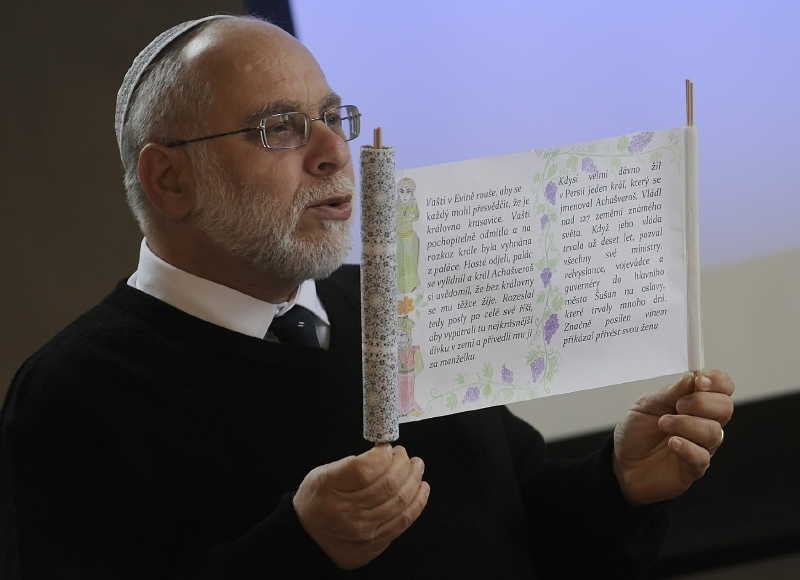 Kdysi velmi dávno žil
v Persii jeden král, který se
jmenoval Achašveroš. Vládl
nad 127 zeměmi známého
světa. Když jeho vláda
trvala už deset let, pozval
všechny své ministry,
velvyslance, vojevůdce a
guvernéry do hlavního
města Šušan na oslavy,
které trvaly mnoho dní.
Značně posilen vínem
přikázal přivést svou ženu
Vašti v Evině rouše, aby se
každý mohl přesvědčit, že je
královna krasavice. Vašti
pochopitelně odmítla a na
rozkaz krále byla vyhnána
z paláce. Hosté odjeli, palác
se vylidnil a král Achašveroš
si uvědomil, že bez královny
se mu těžce žije. Rozeslal
tedy posly po celé své říši,
aby vypátrali tu nejkrásnější
dívku v zemi a přivedli mu ji
za manželku.